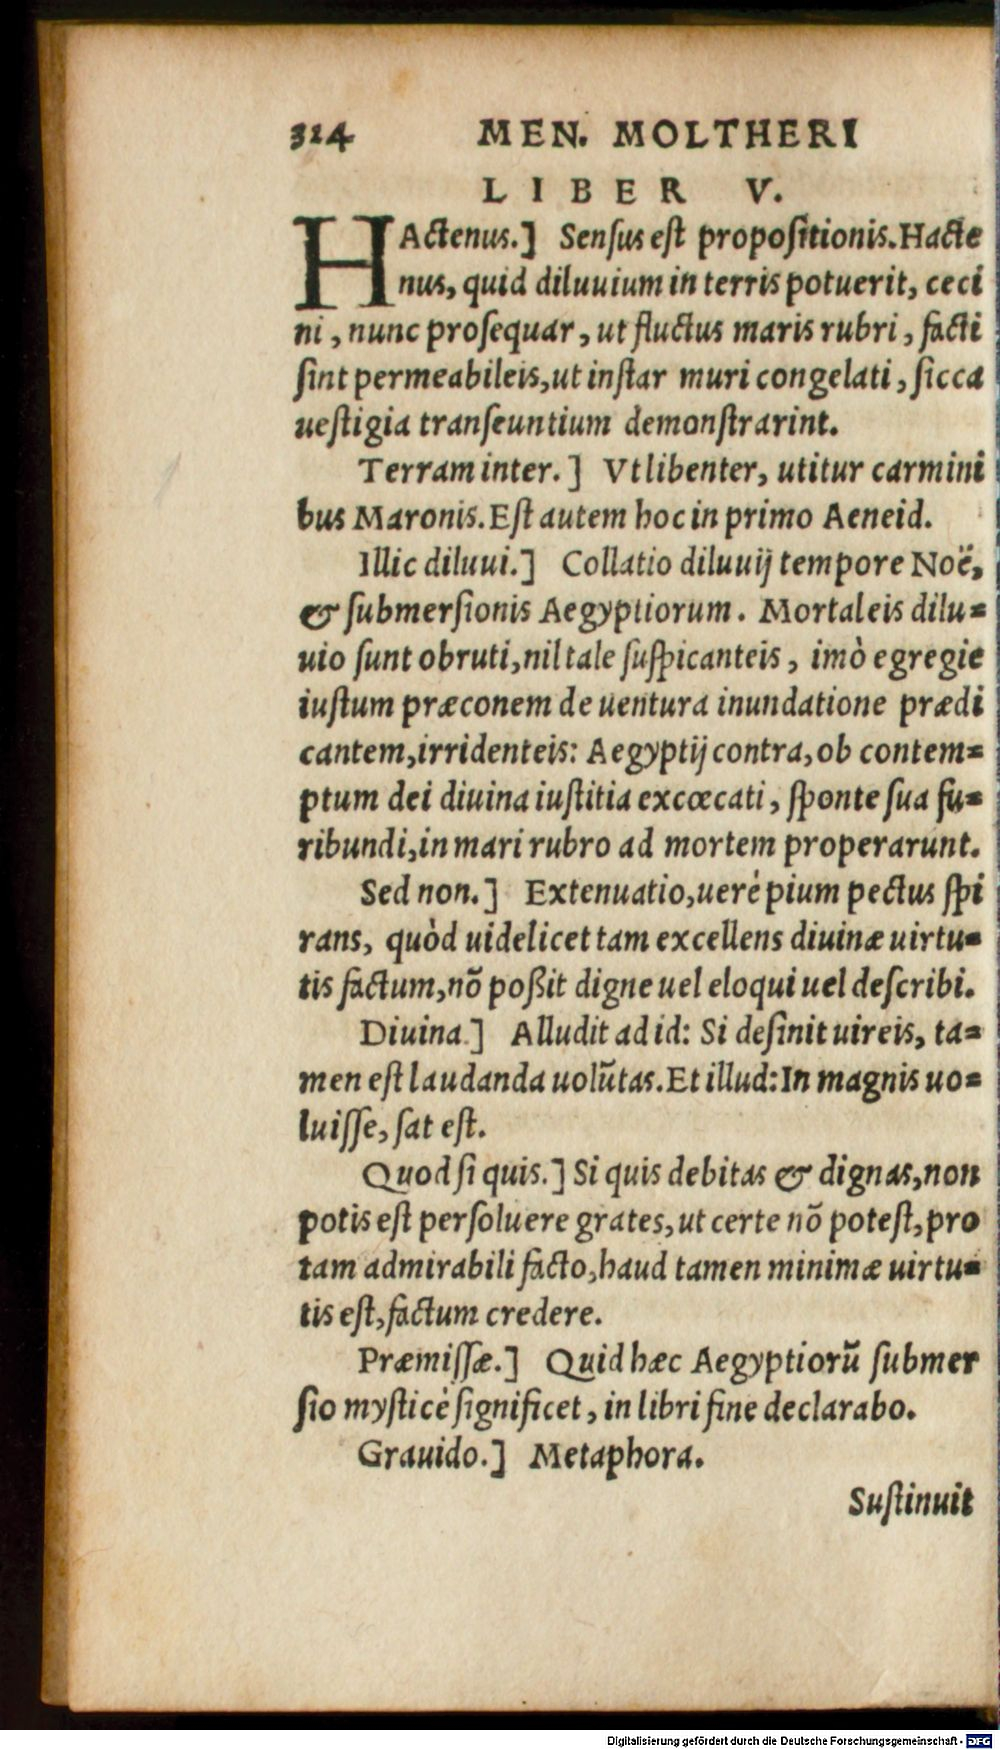 324 MEN. MOLTHERI
LIBER V.
HActenus.] Senſus eſt propoſitionis. Hacte
nus, quid diluuium in terris potuerit, ceci
ni, nunc proſequar, ut fluctus maris rubri, facti
ſint permeabileis, ut inſtar muri congelati, ſicca
ueſtigia tranſeuntium demonſtrarint.
Terram inter.] Vt libenter, utitur carmini
bus Maronis. Eſt autem hoc in primo Aeneid.
Illic diluui.] Collatio diluuij tempore Noë,
& ſubmerſionis Aegyptiorum. Mortaleis dilu=
uio ſunt obruti, nil tale ſuſpicanteis, imò egregie
iuſtum præconem de uentura inundatione prædi
cantem, irridenteis: Aegyptij contra, ob contem=
ptum dei diuina iuſtitia excœcati, ſponte ſua fu=
ribundi, in mari rubro ad mortem properarunt.
Sed non.] Extenuatio, uerè pium pectus ſpi
rans, quòd uidelicet tam excellens diuinæ uirtu=
tis factum, nõ poßit digne uel eloqui uel deſcribi.
Diuina.] Alludit ad id: Si deſinit uireis, ta=
men eſt laudanda uolũtas. Et illud: In magnis uo=
luiſſe, ſat eſt.
Quod ſi quis.] Si quis debitas & dignas, non
potis eſt perſoluere grates, ut certe nõ poteſt, pro
tam admirabili facto, haud tamen minimæ uirtu=
tis eſt, factum credere.
Præmiſſæ.] Quid hæc Aegyptiorũ ſubmer
ſio myſticè ſignificet, in libri fine declarabo.
Grauido.] Metaphora.
Suſtinuit
Digitalisierung gefördert durch die Deutsche Forschungsgemeinschaft - DFG